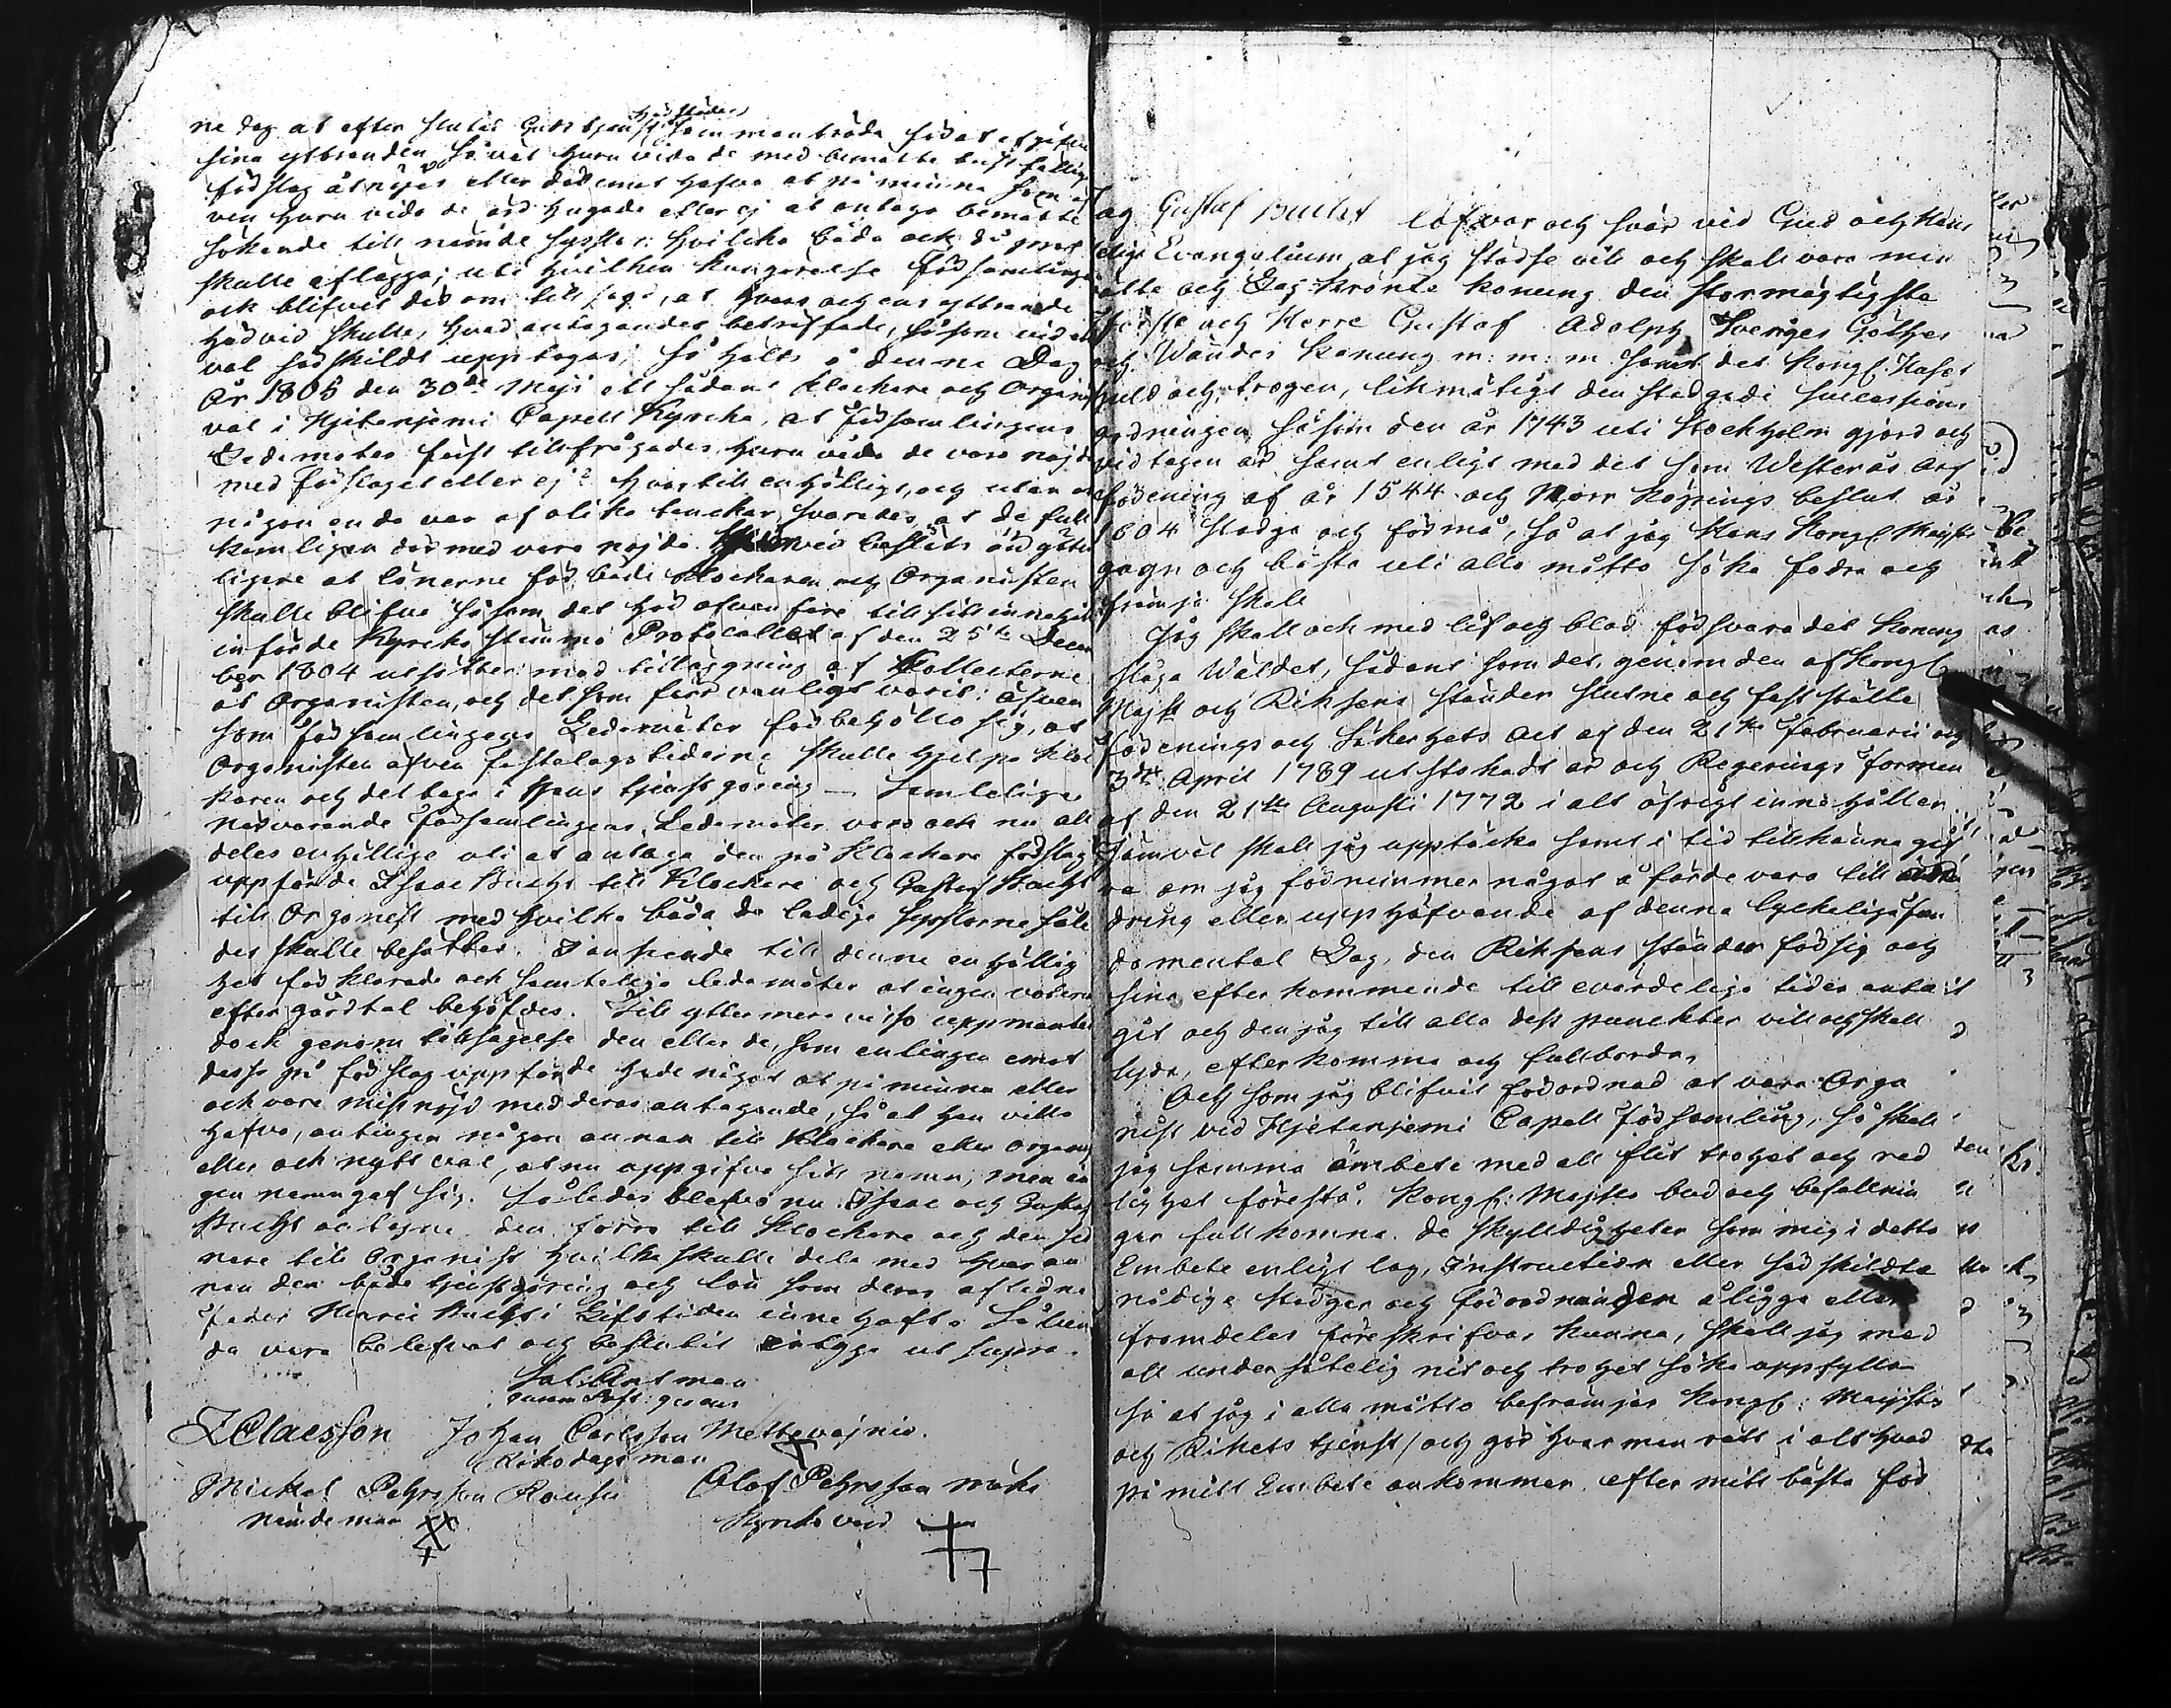 ne dag at efter slutad Gudstjenst här städes sammanträda för at afgifva
sina yttranden, så väl huru vida de med bemälte
förslag åtnöjas eller däremot hafva at påminna som äf
ven huru vida de äro hugade eller ej at antaga bemälte
sökande till nämde sysslor: hvilka båda ock då
skulle aflägga; uti hvilken kungörelse församlingen
ock blifvit därom till sagd, at hvars och ens yttrande
härvid skulle, hvad antagandet beträffade, såsom vid et
val särskildt upptagas; så hölts å denne Dag
År 1805 den 30de Maji ett sådant Klockare och Organist
val i Hjetanjemi Capell Kyrcka, at församlingens
Ledamöter först tillfrågades, huru vida de voro nöjde
med förslaget eller ej? hvartill enhälligt, och utan at
någon enda var af olika tanckar, svarades, at de full
komligen dermed voro nöjde. beslöts
ligare at lönerne för både Klockaren och Organisten
skulle blifva såsom det här ofvanföre till sitt innehåll
införde Kyrcko stämmo Protocollet af den 25te Decem
ber 1804 utsätter med tilläggning af Collecterne
åt Organisten, och det som förr vanligt varit: äfven
som församlingens Ledamöter förbehöllo sig, at
Organisten äfven fastalags tiderne skulle hjelpa Kloc
karen och deltaga i hans tjenstgöring — Samtelige
närvarande församlingens Ledamöter voro ock nu all
deles enhällige uti at antaga den på Klockare förslag
uppförde Isaac Bucht till Klockare och Gustaf Bucht
till Organist med hvilka båda de ledige sysslorne såle
des skulle besättas. I anseende till denne enhällig
het förklarade ock samtelige ledamöter at ingen votering
efter gårdtal behöfdes. Till yttermera visso uppmantes
dock genom tillsägelse den eller de, som antingen emot
desse på förslag uppförde hade något at påminna eller
ock vore missnöjd med deras antagande, så at han ville
hafva, antingen någon annan till Klockare eller organist
eller ock nytt val, at nu uppgifva sitt namn, men in
gen namngaf sig. Således blefvo nu Isaac och Gustaf
Bucht antagne den förre till Klockare och den sed
nare till Organist hvilka skulle dela med hvaran
nan den både tjenstgöring och lön som deras aflidne
Fader Henric Bucht i Lifstiden innehaft. Sålun
da vara belefvat och beslutit intyga ut supra.
Sal: Antman
quam Past: gerens
Z Claesson Johan Carlsson Mettovajnio.
Riksdagsman
Mickel Pehrsson Olof Pehrsson
nämdeman Kyrkovärd
Jag Gustaf Bucht låfvar och svär vid Gud och Hans
Helige Evangelium, at jag städse vill och skall vara min
rätte och Dag krönte Konung den stormägtigste
Förste och Herre Gustaf Adolph Sveriges Göthes
och Wändes Konung m: m: m samt det Kongl. Huset
huld och trogen, likmätigt den stadgade successions
ordningen såsom den år 1743 uti Stockholm gjord och
vidtagen är samt enligt med det som Westerås Arf
förening af år 1544 och Norrköpings beslut år
1604 stadga och förmå, så at jag Hans Kongl. Majts
gagn och bästa uti alla måtto söka fodra och
främja skall
Jag skall ock med lif och blod försvara det Konung
sliga Wäldet, sådant som det, genom den af Kongl
Majt och Riksens ständer slutne och fastställte
förenings och säkerhets Act af den 21te Februarii och
3die April 1789 utstakadt är och Regerings formen
af den 21te Augusti 1772 i alt öfrigt innehåller.
Jämväl skall jag upptäcka samt i tid tillkänna gif
va om jag förnimmer något å färde vara till
dring eller upphäfvande af denna lyckeliga fun
damental Lag, den Riksens ständer för sig och
sina efterkommande till everdeliga tider anta
git och den jag till alla dess punckter vill och skall
lyda, efterkomma och fullborda.
Och som jag blifvit förordnad at vara Orga
nist vid Hjetanjemi Capell Församling, så skall
jag samma ämbete med all flit trohet och red
lighet förestå. Kongl: Majsts bud och befallnin
gar fullkomna. de skylldigheter som mig i detta
Embete enligt lag, Instruction eller särskildta
nådige stadgar och förordnanden åligga eller
framdeles föreskrifvas kunna, skall jag med
all undersåtelig nit och trohet söka uppfylla
så at jag i alla måtto befrämjar Kongl: Majsts
och Rikets tjenst, och gör hvarman rätt i alt hvad
på mitt Embete ankommer, efter mitt bästa för